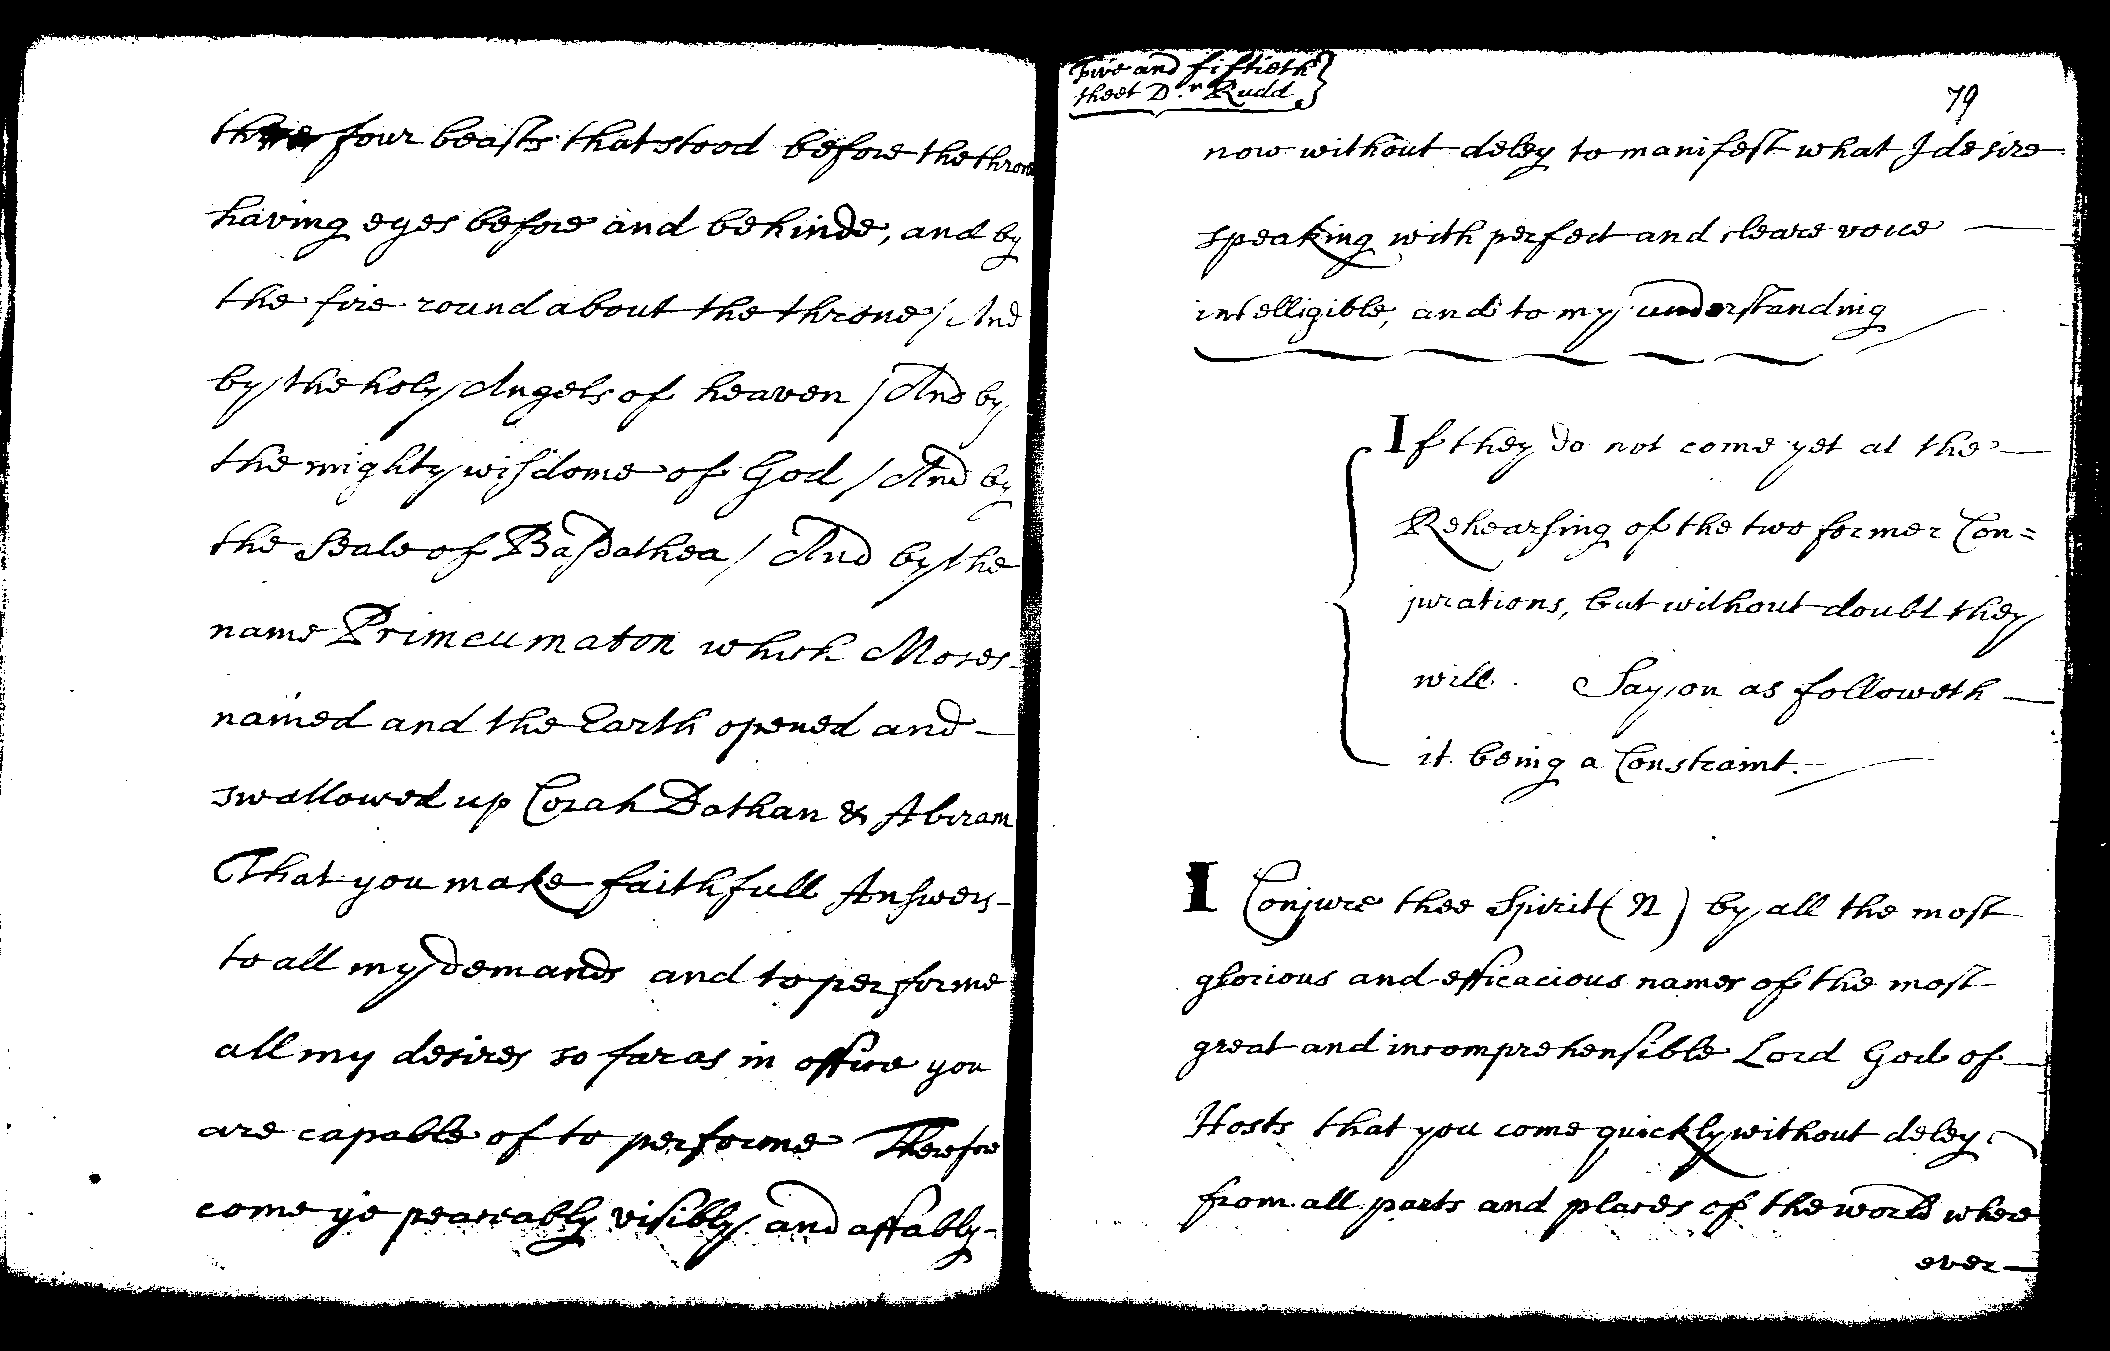 the four beasts that stood before the throne
having eyes before and behinde, and by
the fire round about the throne / And
by the holy Angels of heaven / And by
the mighty wisdome of God / And by
the Seale of Basdathea / And by the
name Primeumaton which Moses
named and the Earth opened and
swallowed up Corah Dathan & Abiram
That you make faithfull Answers
to all my demands and to performe
all my desires so far as in office you
are capable of to performe Therefore
come ye peaceably visibly and affably
Five and fiftieth
sheet Dr. Rudd
79
now without deley to manifest what I desire
speaking with perfect and cleare voice
intelligible, and to my understanding
If they do not come yet at the
Rehearsing of the two former Con=
jurations, but without doubt they
will. Say on as followeth
it being a Constraint.
I Conjure thee Spirit (N) by all the most
glorious and efficacious names of the most
great and incomprehensible Lord God of
Hosts that you come quickly without deley
from all parts and places of the world where
ever